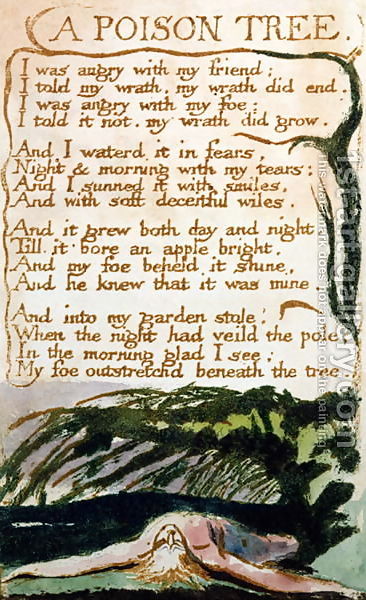 A POISON TREE.
I was angry with my friend;
I told my wrath, my wrath did end.
I was angry with my foe:
I told it not, my wrath did grow.
And I waterd it in fears,
Night & morning with my tears:
And I sunned it with smiles,
And with soft deceitful wiles.
And it grew both day and night
Till it bore an apple bright.
And my foe beheld it shine,
And he knew that it was mine
And into my garden stole;
When the night had veild the pole
In the morning glad I see;
My foe outstretchd beneath the tree
1st-art-gallery.com
This watermark does not appear on the painting